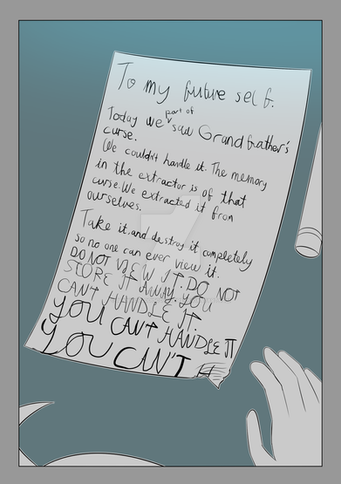 To my future self.
Today we part of saw Grandfather's
curse.
We couldn't handle it. The memory
in the extractor is of that
curse. We extracted it from
ourselves.
Take it and destroy it completely
so no one can ever view it.
DO NOT VIEW IT. DO NOT
STORE IT AWAY. YOU
CAN'T HANDLE IT.
YOU CAN'T HANDLE IT
YOU CAN'T